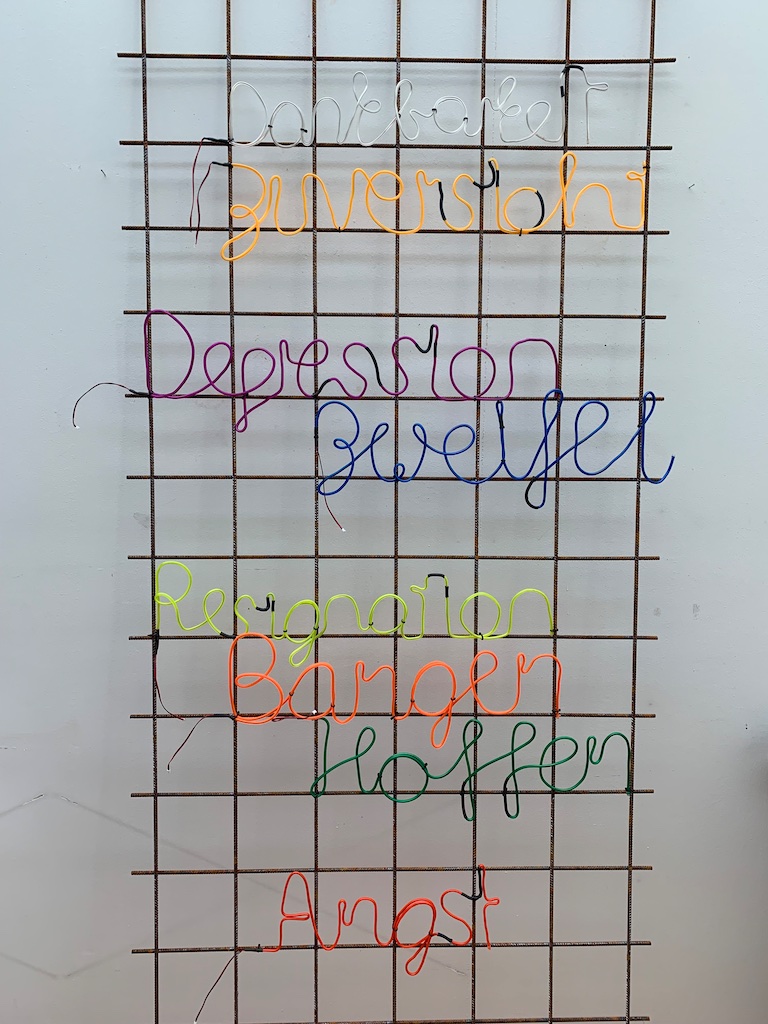 Dankbarkeit
Zuversicht
Depression
Zweifel
Resignation
Bangen
Hoffen
Angst